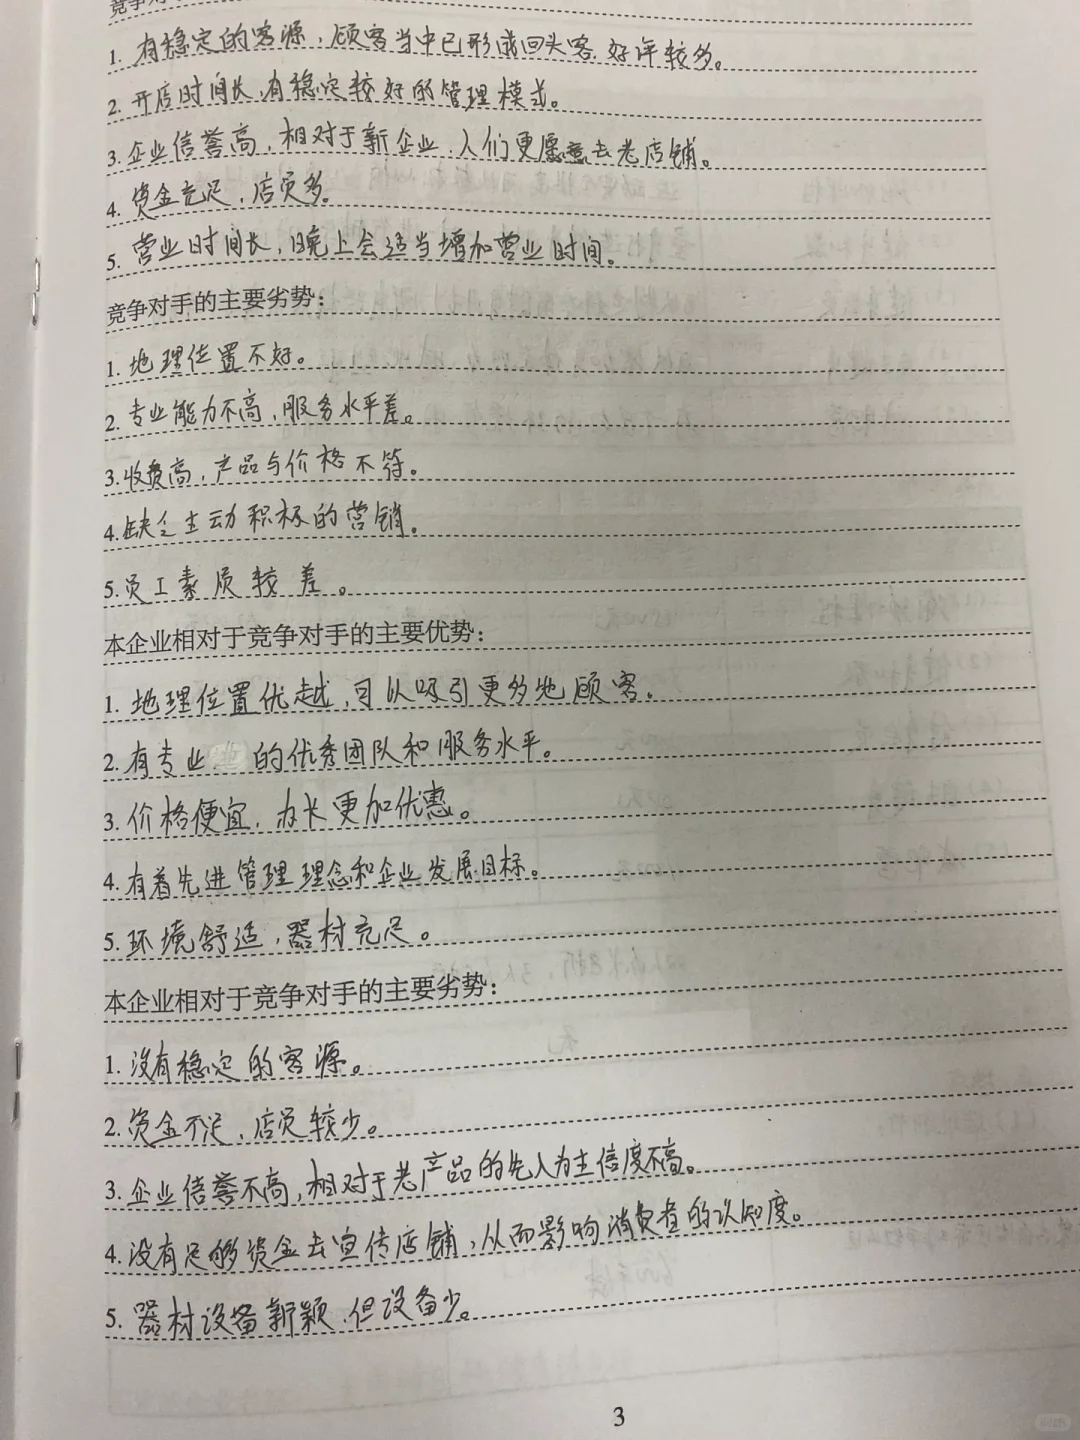 竞争对手
1. 有稳定的客源，顾客当中已形成回头客，好评较多。
2. 开店时间长，有稳定较好的管理模式。
3. 企业信誉高，相对于新企业，人们更愿意去老店铺。
4. 资金充足，店员多。
5. 营业时间长，晚上会适当增加营业时间。
竞争对手的主要劣势：
1. 地理位置不好。
2. 专业能力不高，服务水平差。
3. 收费高，产品与价格不符。
4. 缺乏主动积极的营销。
5. 员工素质较差。
本企业相对于竞争对手的主要优势：
1. 地理位置优越，可以吸引更多地顾客。
2. 有专业的优秀团队和服务水平。
3. 价格便宜，办卡更加优惠。
4. 有着先进管理理念和企业发展目标。
5. 环境舒适，器材充足。
本企业相对于竞争对手的主要劣势：
1. 没有稳定的客源。
2. 资金不足，店员较少。
3. 企业信誉不高，相对于老产品的先入为主信度不高。
4. 没有足够资金去宣传店铺，从而影响消费者的认知度。
5. 器材设备新颖，但设备少。
3